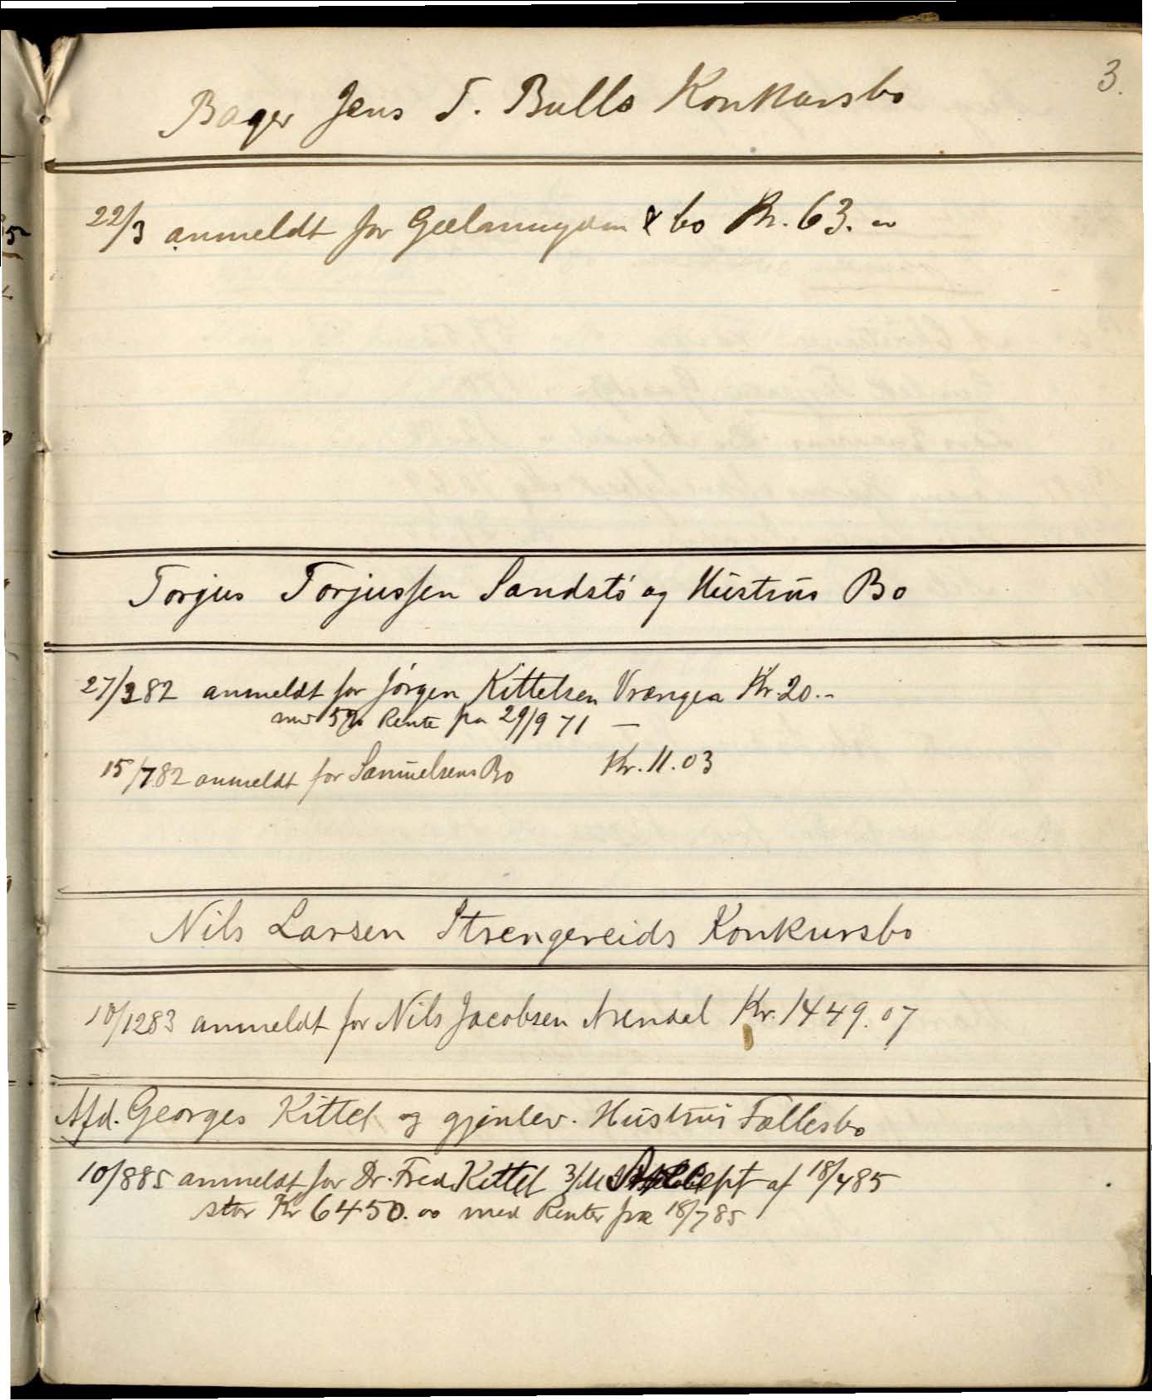 3.
Bager Jens T. Bulls Konkursbo
22/3 anmeldt for & bo Kr. 63. "
Torjus Torjussen Sandstö og Hustrus Bo
27/3 82 anmeldt for Jörgen Kittelsen Vrængea Kr. 20. -
5% Rente fra 29/9 71 —
15/7 82 anmeldt for Samuelsens Bo Kr. 11.03
Nils Larsen Strengereids Konkursbo
10/12 83 anmeldt for Nils Jacobsen Arendal Kr. 1449.07
Afd. Georges Kittel og gjenlev. Hustrus Fællesbo
10/8 85 anmeldt for Dr. Fred. Kittel 3/M Accept af 18/4 85
stor Kr 6450.00 med Renter fra 18/7 85